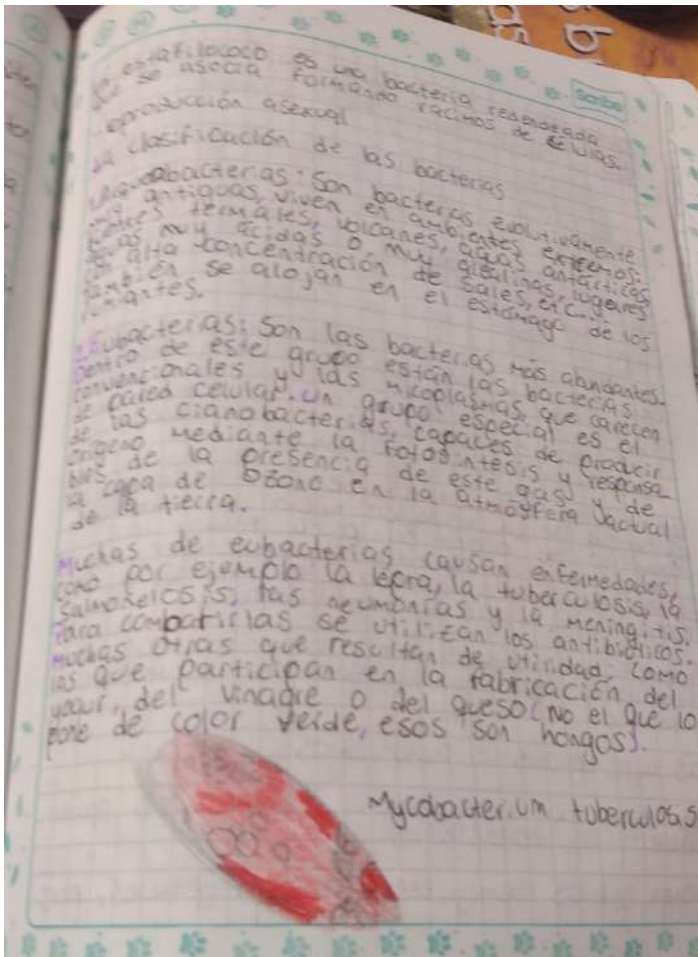 Scribe
estafilococo es una bacteria redondeada
que se asocia formando racimos de células.
reproducción asexual
La clasificación de las bacterias
Arqueobacterias: Son bacterias evolutivamente
muy antiguas, viven en ambientes extremos:
termales, volcanes, aguas antárticas,
muy ácidas o muy alcalinas, lugares
con alta concentración de sales, etc.
También se alojan en el estómago de los
rumiantes.
Eubacterias: Son las bacterias más abundantes.
Dentro de este grupo están las bacterias
convencionales y las micoplasmas, que carecen
de pared celular. Un grupo especial es el
de las cianobacterias, capaces de producir
oxígeno mediante la fotosíntesis y responsa-
bles de la presencia de este gas y de
la capa de ozono en la atmósfera actual
de la tierra.
Muchas de eubacterias causan enfermedades,
como por ejemplo la lepra, la tuberculosis, la
Salmonelosis, las neumonías y la meningitis.
Para combatirlas se utilizan los antibióticos.
Muchas otras que resultan de utilidad, como
las que participan en la fabricación del
yogur, del vinagre o del queso (No el que lo
pone de color verde, esos son hongos).
Mycobacterium tuberculosis